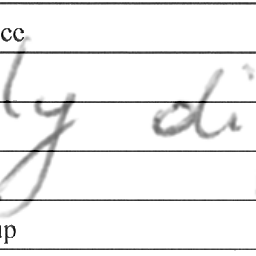 cc
ly di
up